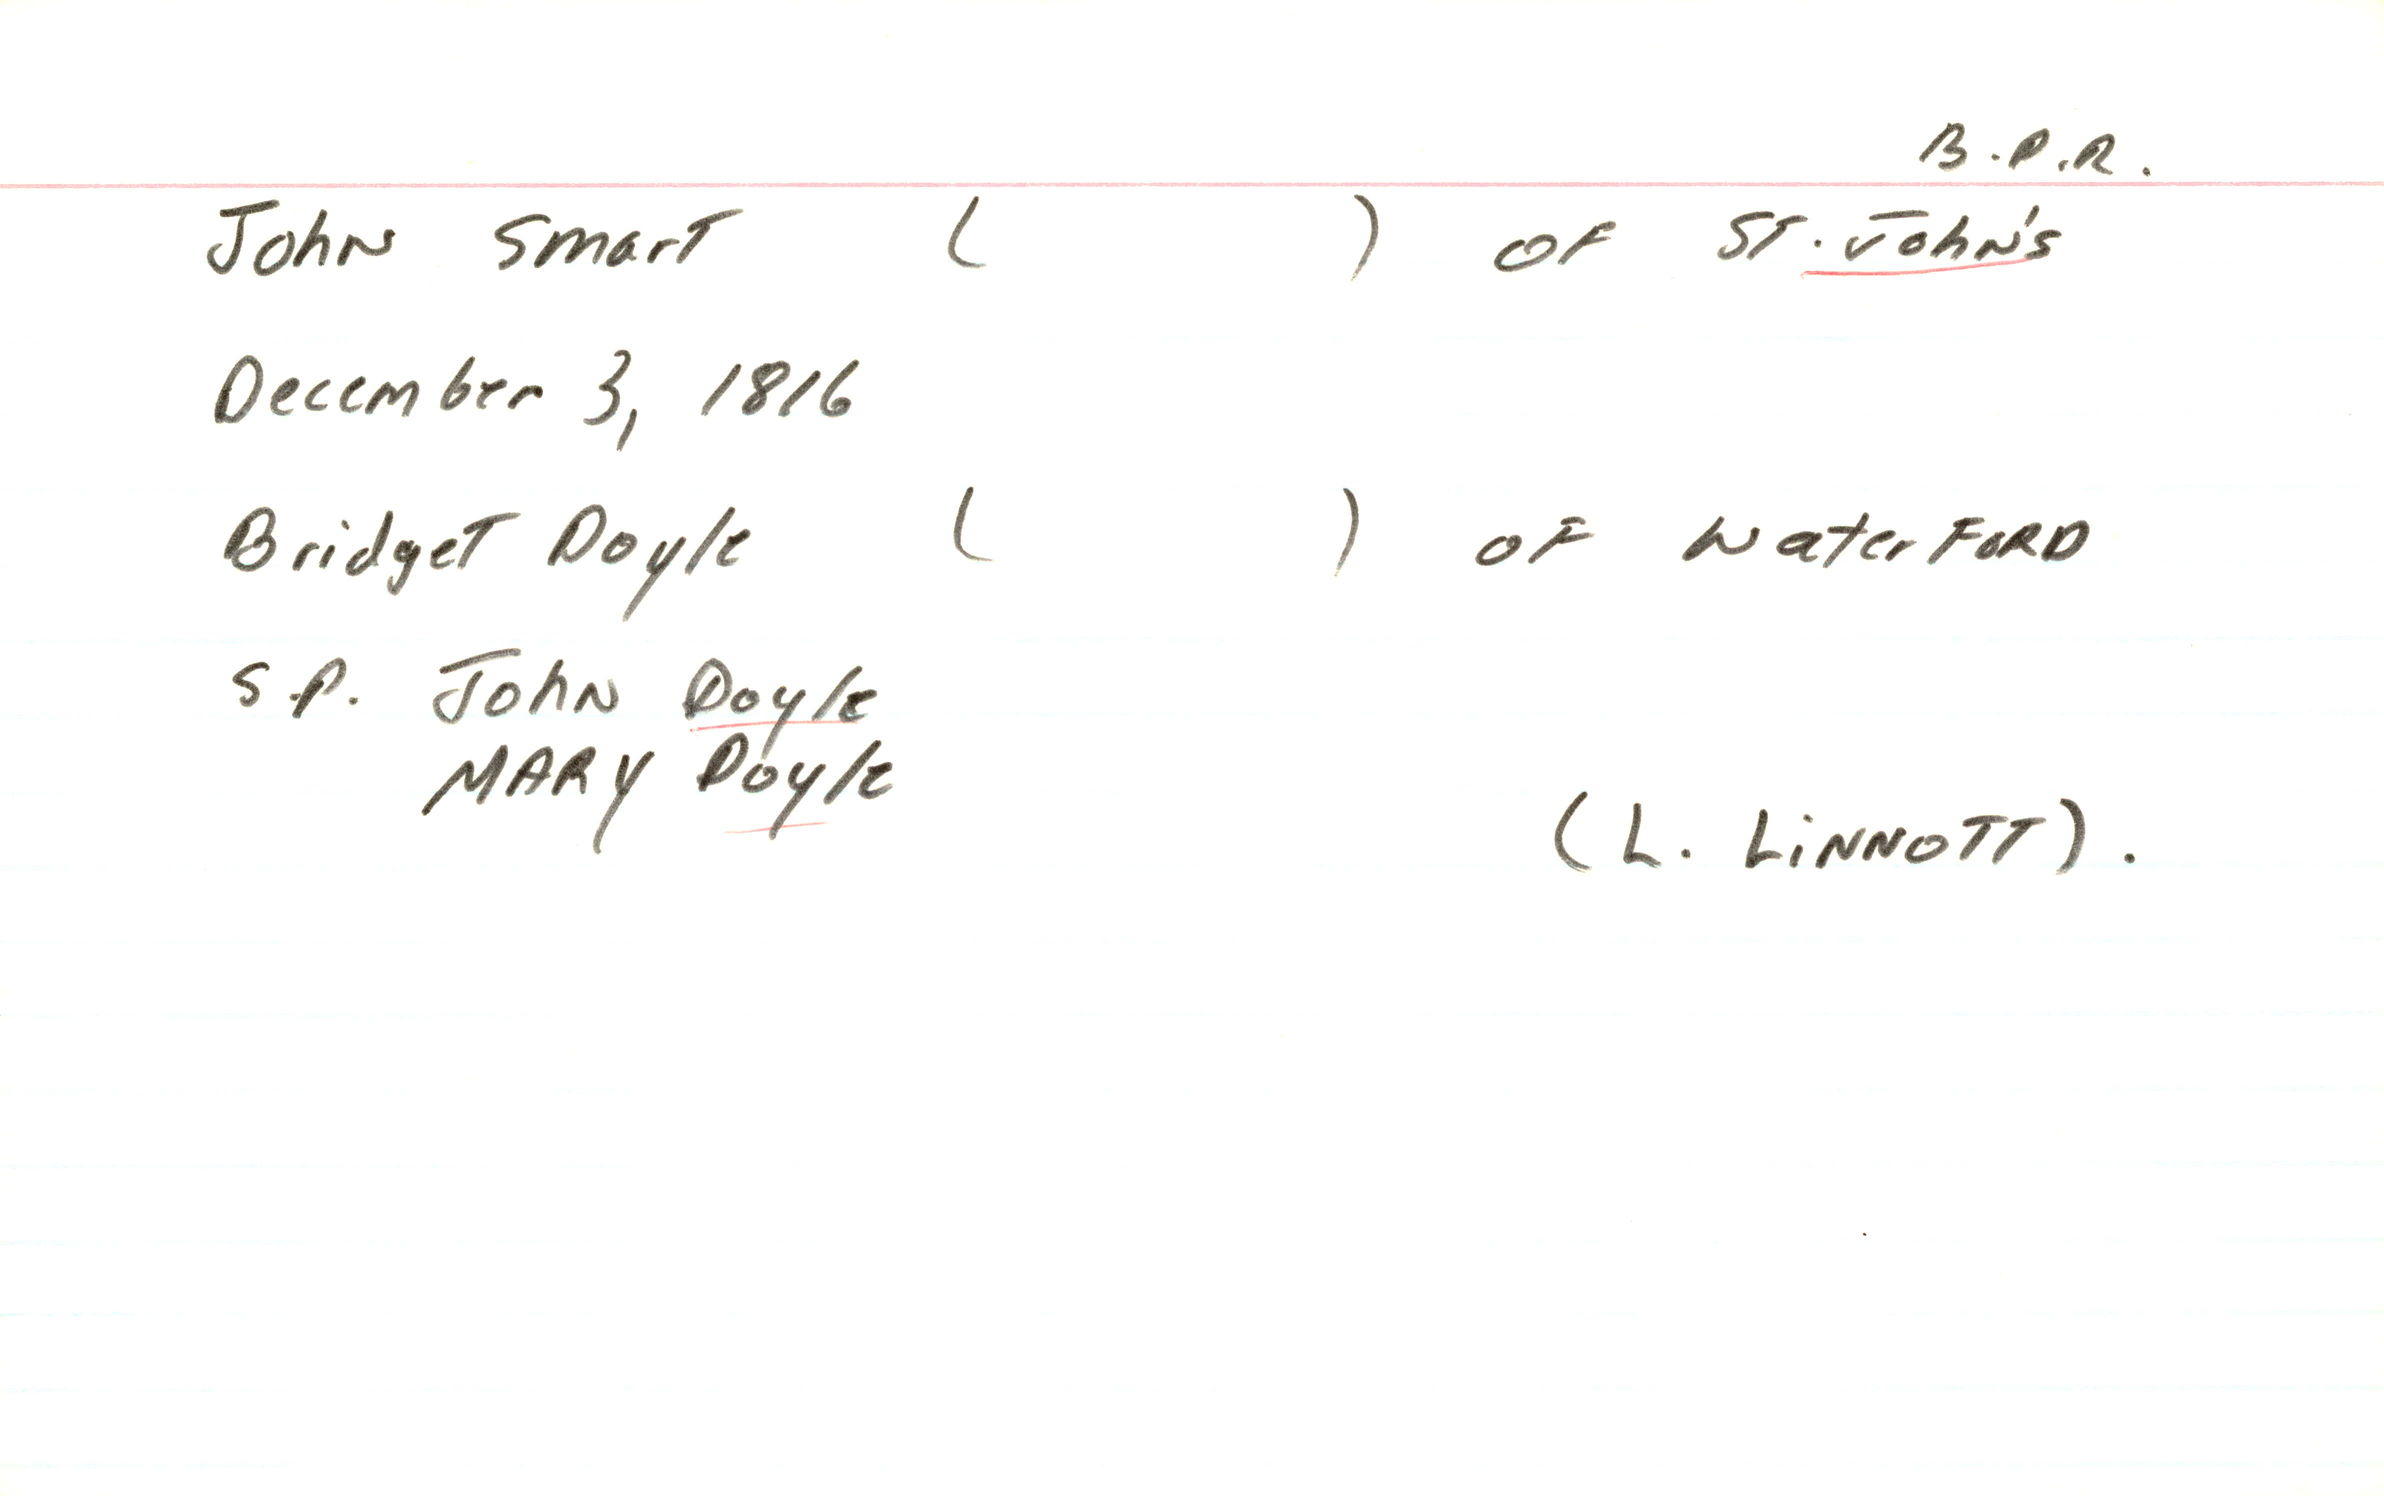 B.P.R.
John Smart ( ) of St. John's
December 3, 1816
Bridget Doyle ( ) of Waterford
S.P. John Doyle
Mary Doyle
(L. Linnott).